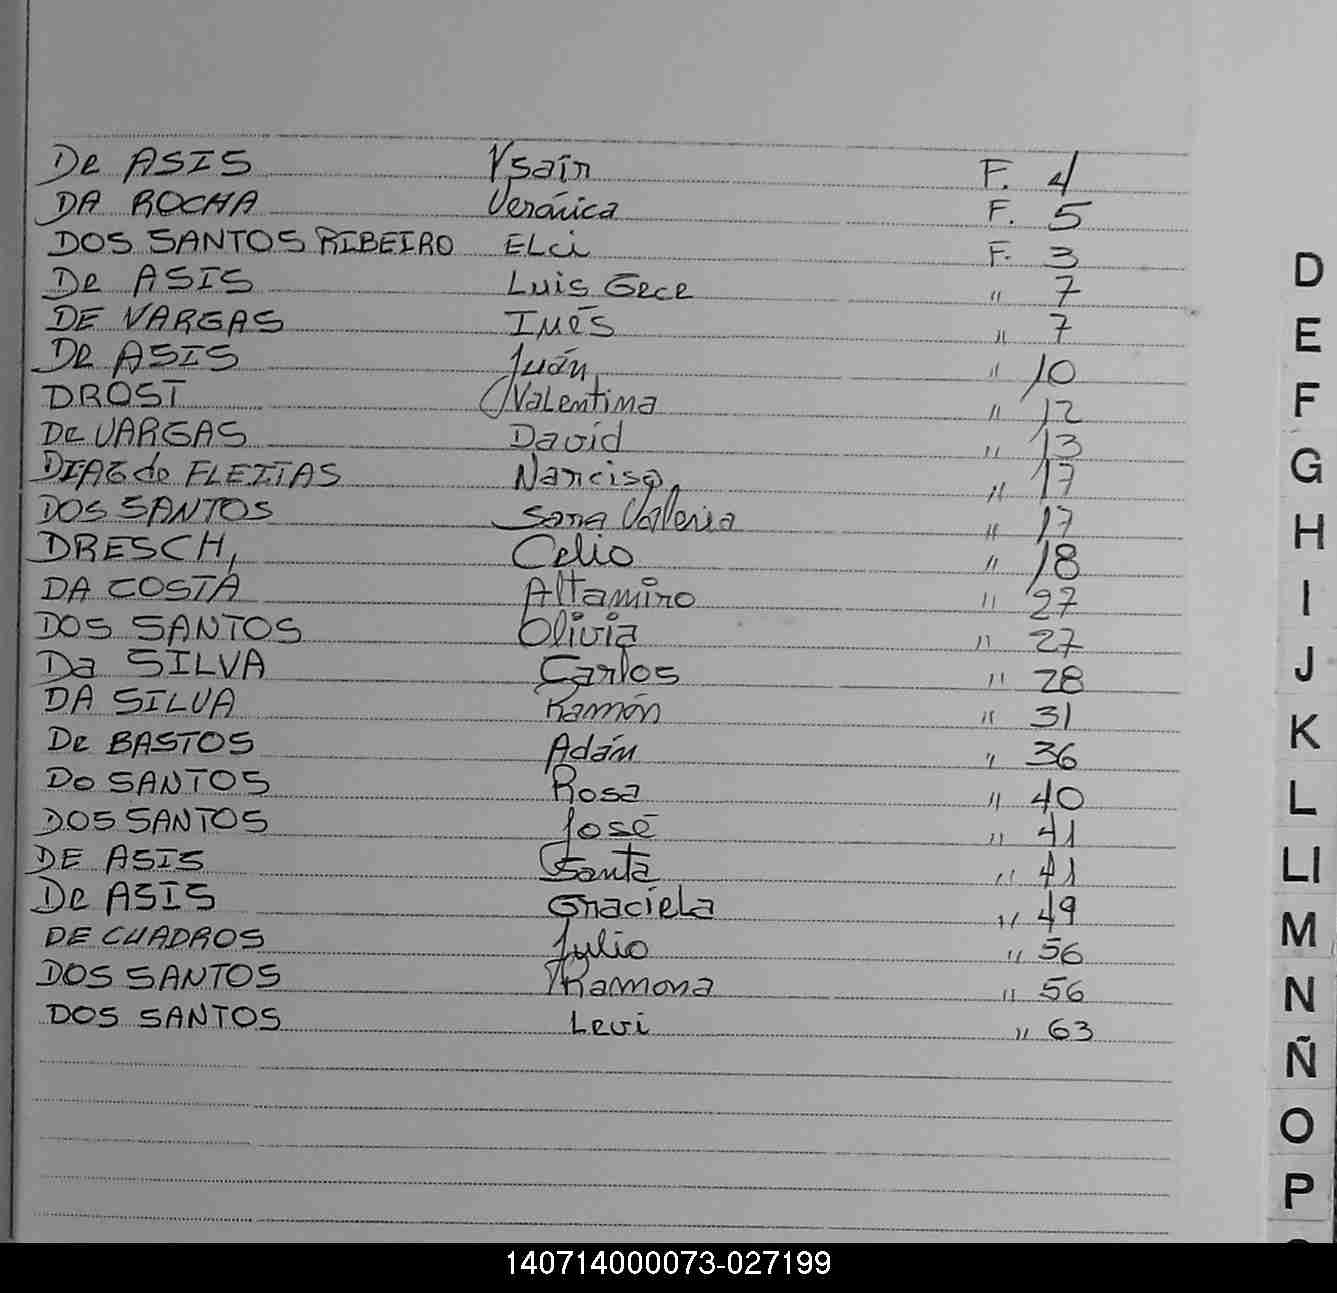 De ASIS Ysaín F. 4
DA ROCHA Verónica F. 5
DOS SANTOS RIBEIRO ELci F. 3
De ASIS Luis Gece " 7
DE VARGAS Inés " 7
De ASIS Juán " 10
DROST Valentina " 12
De VARGAS David " 13
DIAZ de FLEITAS Narcisa " 17
DOS SANTOS Sona Valeria " 17
DRESCH, Celio " 18
DA COSTA Altamiro " 27
DOS SANTOS Olivia " 27
Da SILVA Carlos " 28
DA SILVA Ramón " 31
De BASTOS Adán " 36
Do SANTOS Rosa " 40
DOS SANTOS José " 41
DE ASIS Santa " 41
De ASIS Graciela " 49
DE CUADROS Julio " 56
DOS SANTOS Ramona " 56
DOS SANTOS Levi " 63
D
E
F
G
H
I
J
K
L
Ll
M
N
Ñ
O
P
140714000073-027199